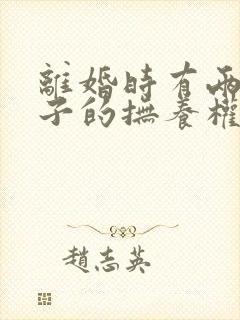 離婚時有兩
子的撫養權
趙志英